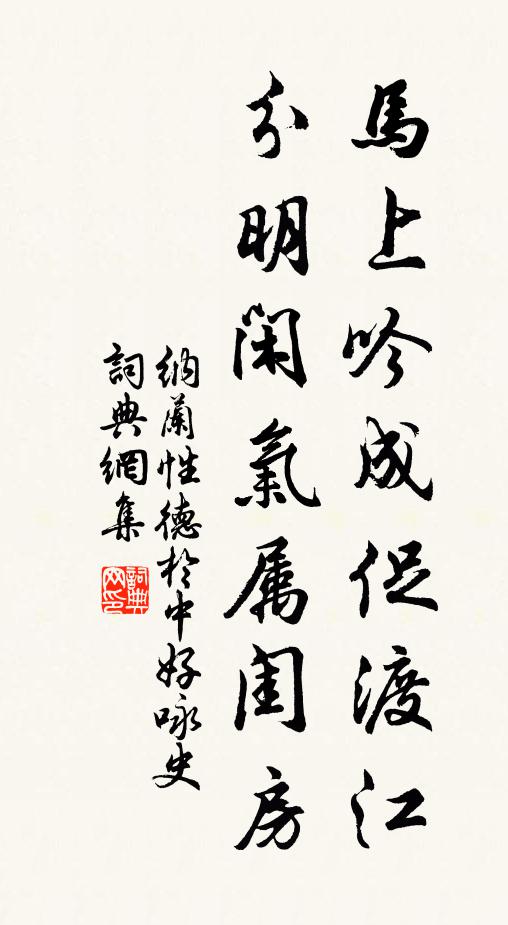 馬上吟成促渡江
分明閑氣属閨房
納蘭性德於中好咏史
詞典網集
詞典
网印